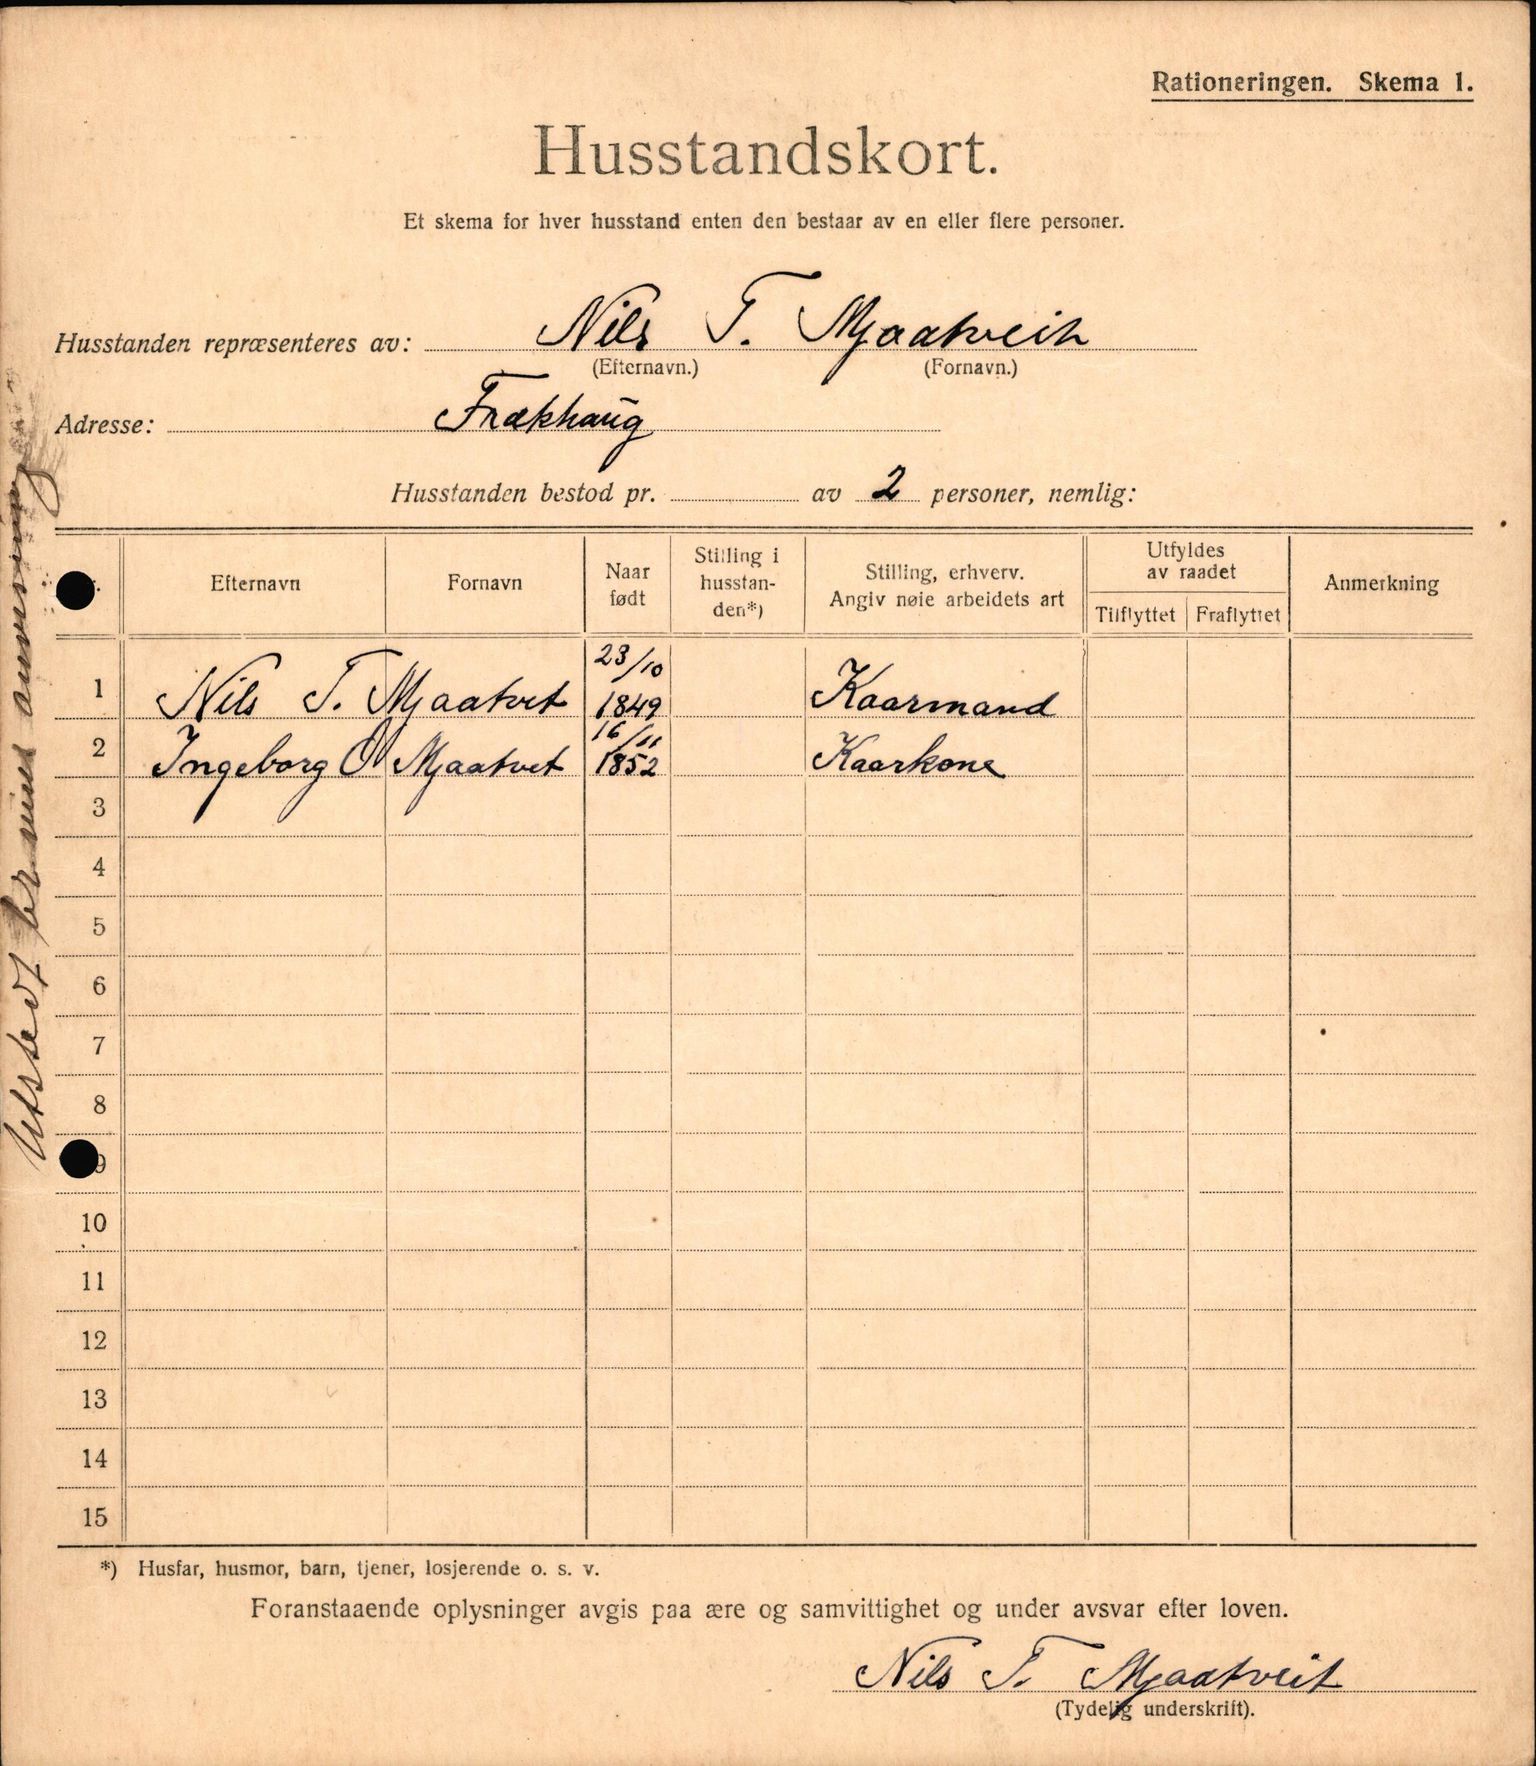 Rationeringen. Skema 1.
Husstandskort.
Et skema for hver husstand enten den bestaar av en eller flere personer.
Husstanden repræsenteres av: Nils T. Mjaatveit
(Efternavn.) (Fornavn.)
Adresse: Frækhaug
Husstanden bestod pr. av 2 personer, nemlig:
Efternavn Fornavn Naar født Stilling i husstanden*) Stilling, erhverv. Angiv nøie arbeidets art Utfyldes av raadet Tilflyttet Fraflyttet Anmerkning
1 Nils T. Mjaatvet 23/10 1849 Kaarmand
2 Ingeborg O Mjaatvet 16/11 1852 Kaarkone
3
4
5
6
7
8
9
10
11
12
13
14
15
*) Husfar, husmor, barn, tjener, losjerende o. s. v.
Foranstaaende oplysninger avgis paa ære og samvittighet og under avsvar efter loven.
Nils T. Mjaatveit
(Tydelig underskrift).
Utstedt anvisning